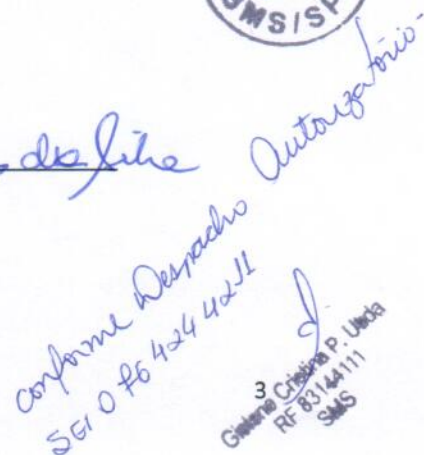 SMS/SP
da Silva
conforme Despacho Autorizatório
SEI 0764244211
3
Cristina P. Ueda
RF 83144111
SMS